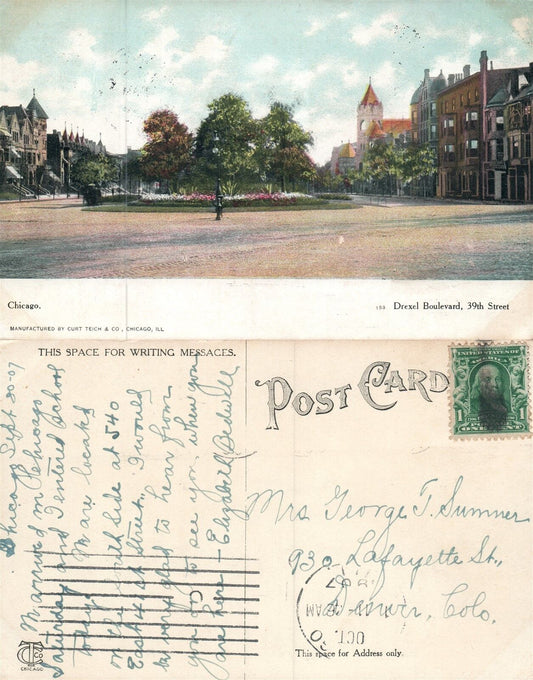 Chicago.
123 Drexel Boulevard, 39th Street
MANUFACTURED BY CURT TEICH & CO., CHICAGO, ILL
THIS SPACE FOR WRITING MESSAGES.
POST CARD
UNITED STATES
1 1
Chicago Sept 30-07
Arrived in Chicago
Saturday and I entered school
today. I am located
on the south side at 540
East 41st Street. I would
be very glad to hear from
you or to see you when you
are here — Elizabeth Bedwell
Mrs George T. Sumner
930 Lafayette St.,
Denver, Colo.
OCT 1
AM
07
CT
CHICAGO
This space for Address only.